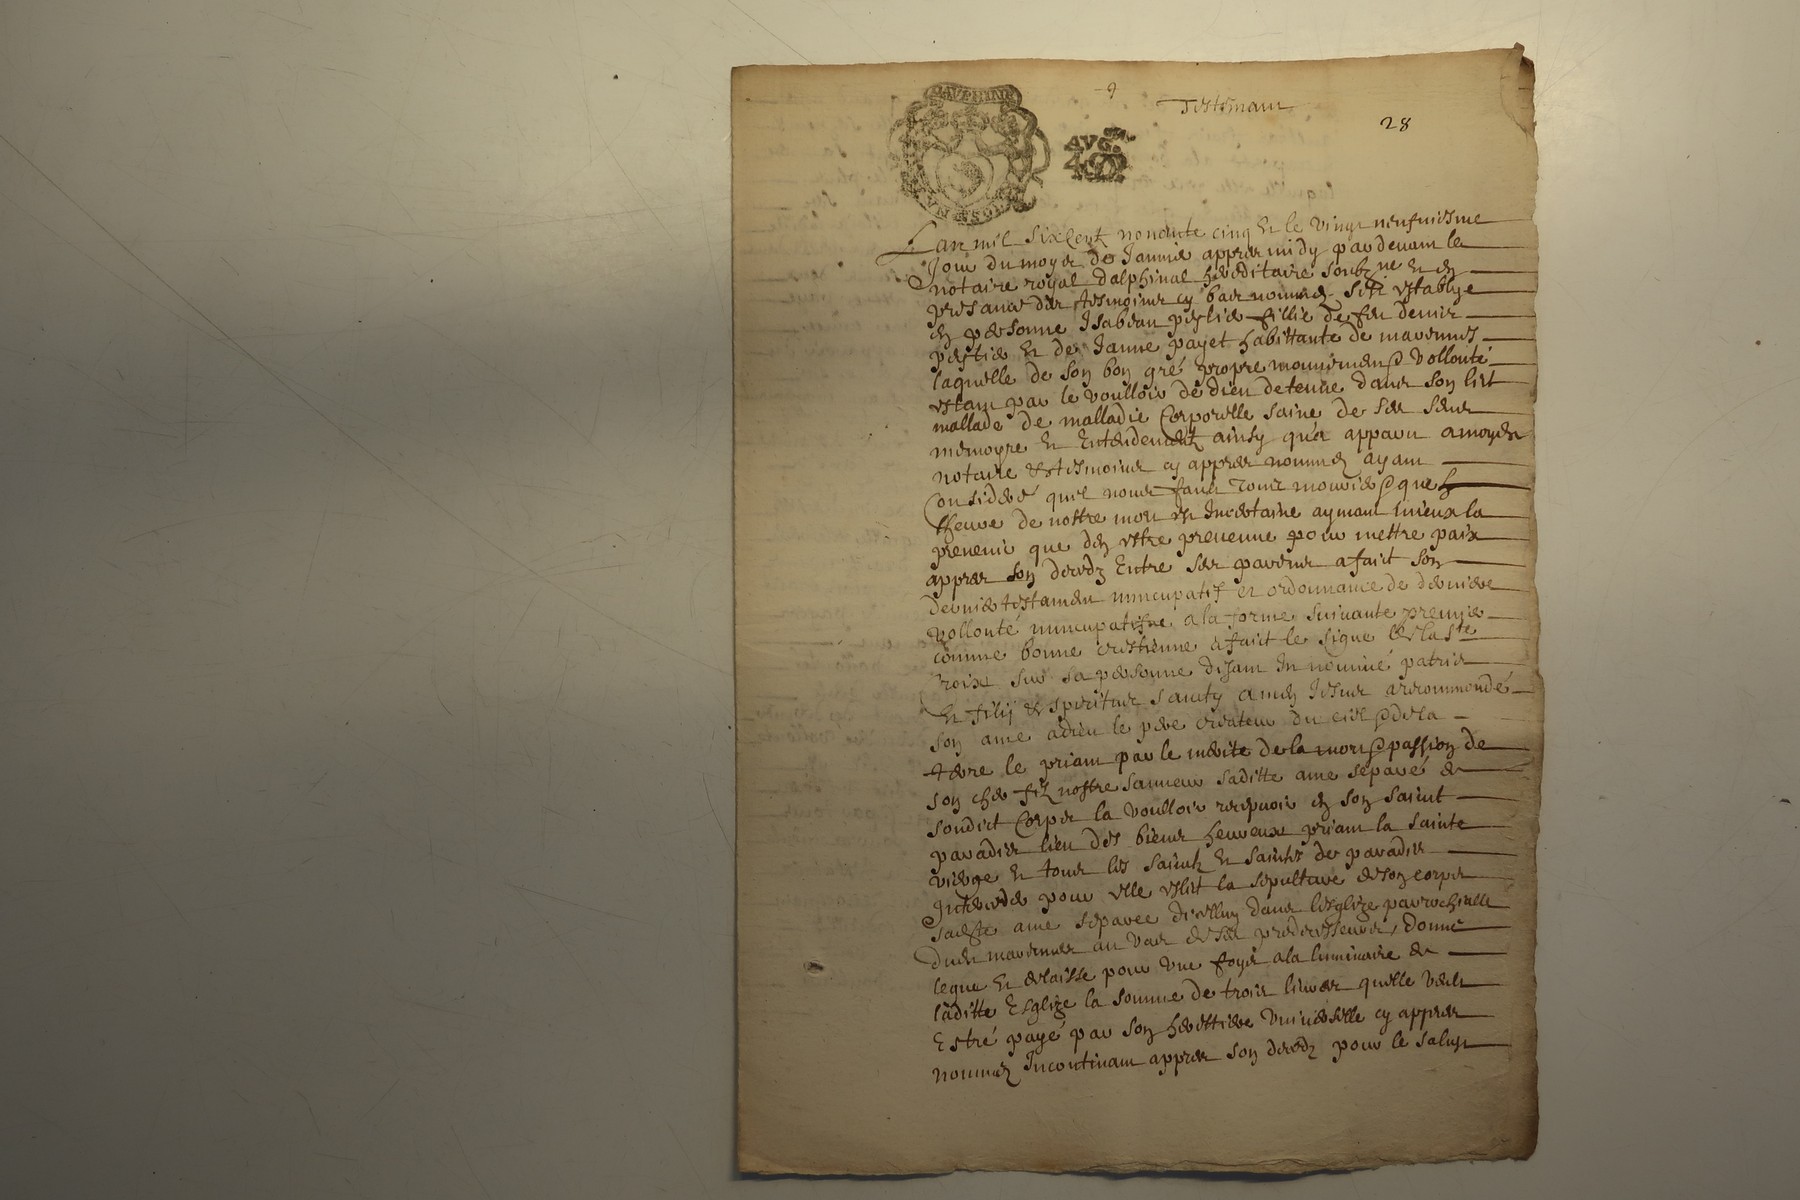 9
Testemant
28
AVG.
Lan mil six Centz nonente cinq Et le vingt neufviesme
Jour du moyes de Janvie appres midy pardevant le
notaire royal dalphinal hereditaire soubzne Et en
presance des tesmoins cy bas nommes sest establye
en personne Isabeau fillie de feu
Et de Janne payet habittante de marennes
laquelle de son bon gré propre mouvement & vollonté
estant par le voulloir de dieu detenue dans son lict
mallade de malladie Corporelle saine de ses sens
memoyre Et Entendement ainsy qua apparu amoyd
notaire & tesmoins cy appres nommes ayant
Consideré quil nous faut tous mourir & que
lheure de nostre mort est Incertaine aymant mieux la
prevenir que den estre prevenue pour mettre paix
appres son deces Entre ses parens a faict son
dernier testament nuncupatif et ordonnance de derniere
vollonté nuncupatifve a la forme suivante premie
comme bonne crestienne a faict le signe de la ste
croix sur sa personne disant In nominé patris
Et filij & spiritus sancty amen Jesus a recommandé
son ame a dieu le pere createur du ciel & dela
terre le priant par le merite de la mort & passion de
son cher filz nostre sauveur saditte ame separé de
sondict Corps la voulloir recepvoir en son saint
paradis lieu des biens heureux priant la sainte
vierge Et tous les saintz Et saintes de paradis
Interceder pour elle eslit la sepulture de son corps
sadte ame separee dicelluy dans lesglize parrochialle
dudt marennes au vas de ses predecesseurs, donne
legue Et delaisse pour une foys a la luminaire de
laditte Esglize la somme de trois livres quelle veut
Estré payé par son herettiere universelle cy appres
nommes Incontinant appres son deces pour le salut